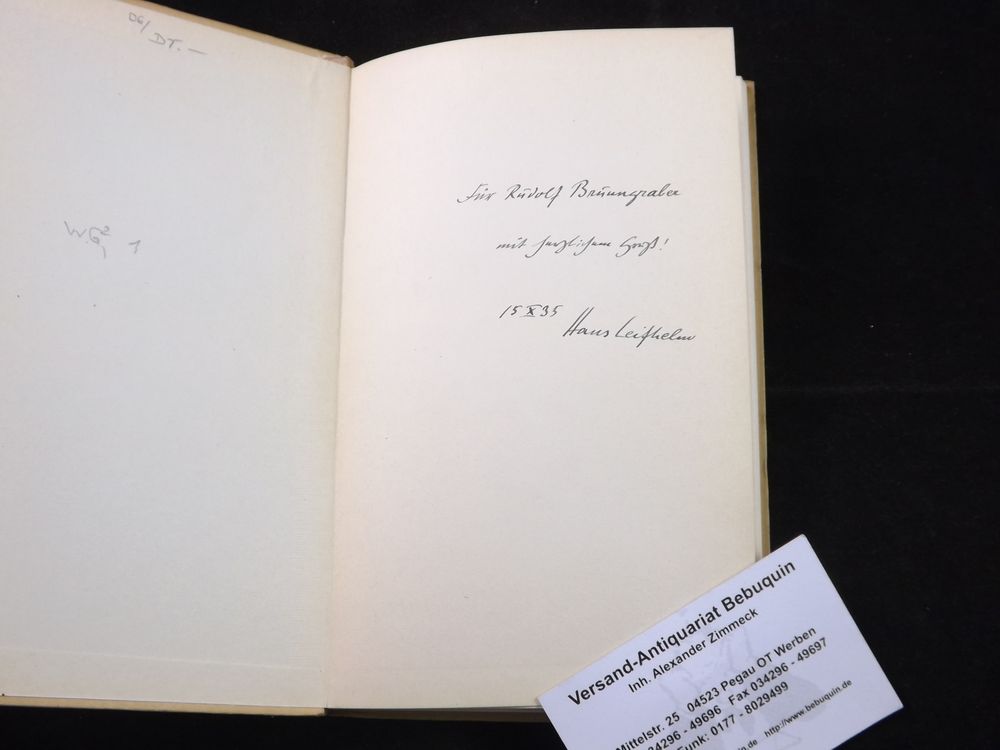 DT. —
W.G² 1
Für Rudolf Brunngraber
mit herzlichem Gruß!
15 X 35
Hans Leifhelm
Versand-Antiquariat Bebuquin
Inh. Alexander Zimmeck
Mittelstr. 25 04523 Pegau OT Werben
34296 - 49696 Fax 034296 - 49697
Funk: 0177 - 8029499
http://www.bebuquin.de